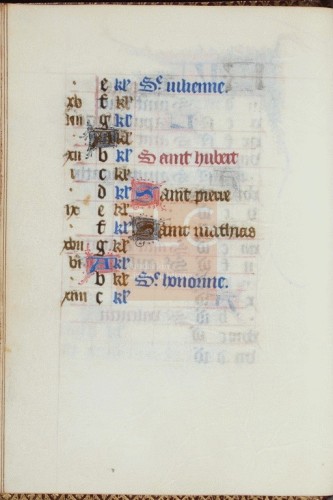 e kl Se iulienne.
xv f kl
iiii g kl
A kl
xii b kl Saint hubert
i c kl
d kl Saint pierre
ix e kl
f kl Saint mathias
xvii g kl
vi A kl
b kl Se honorine.
xiiii c kl